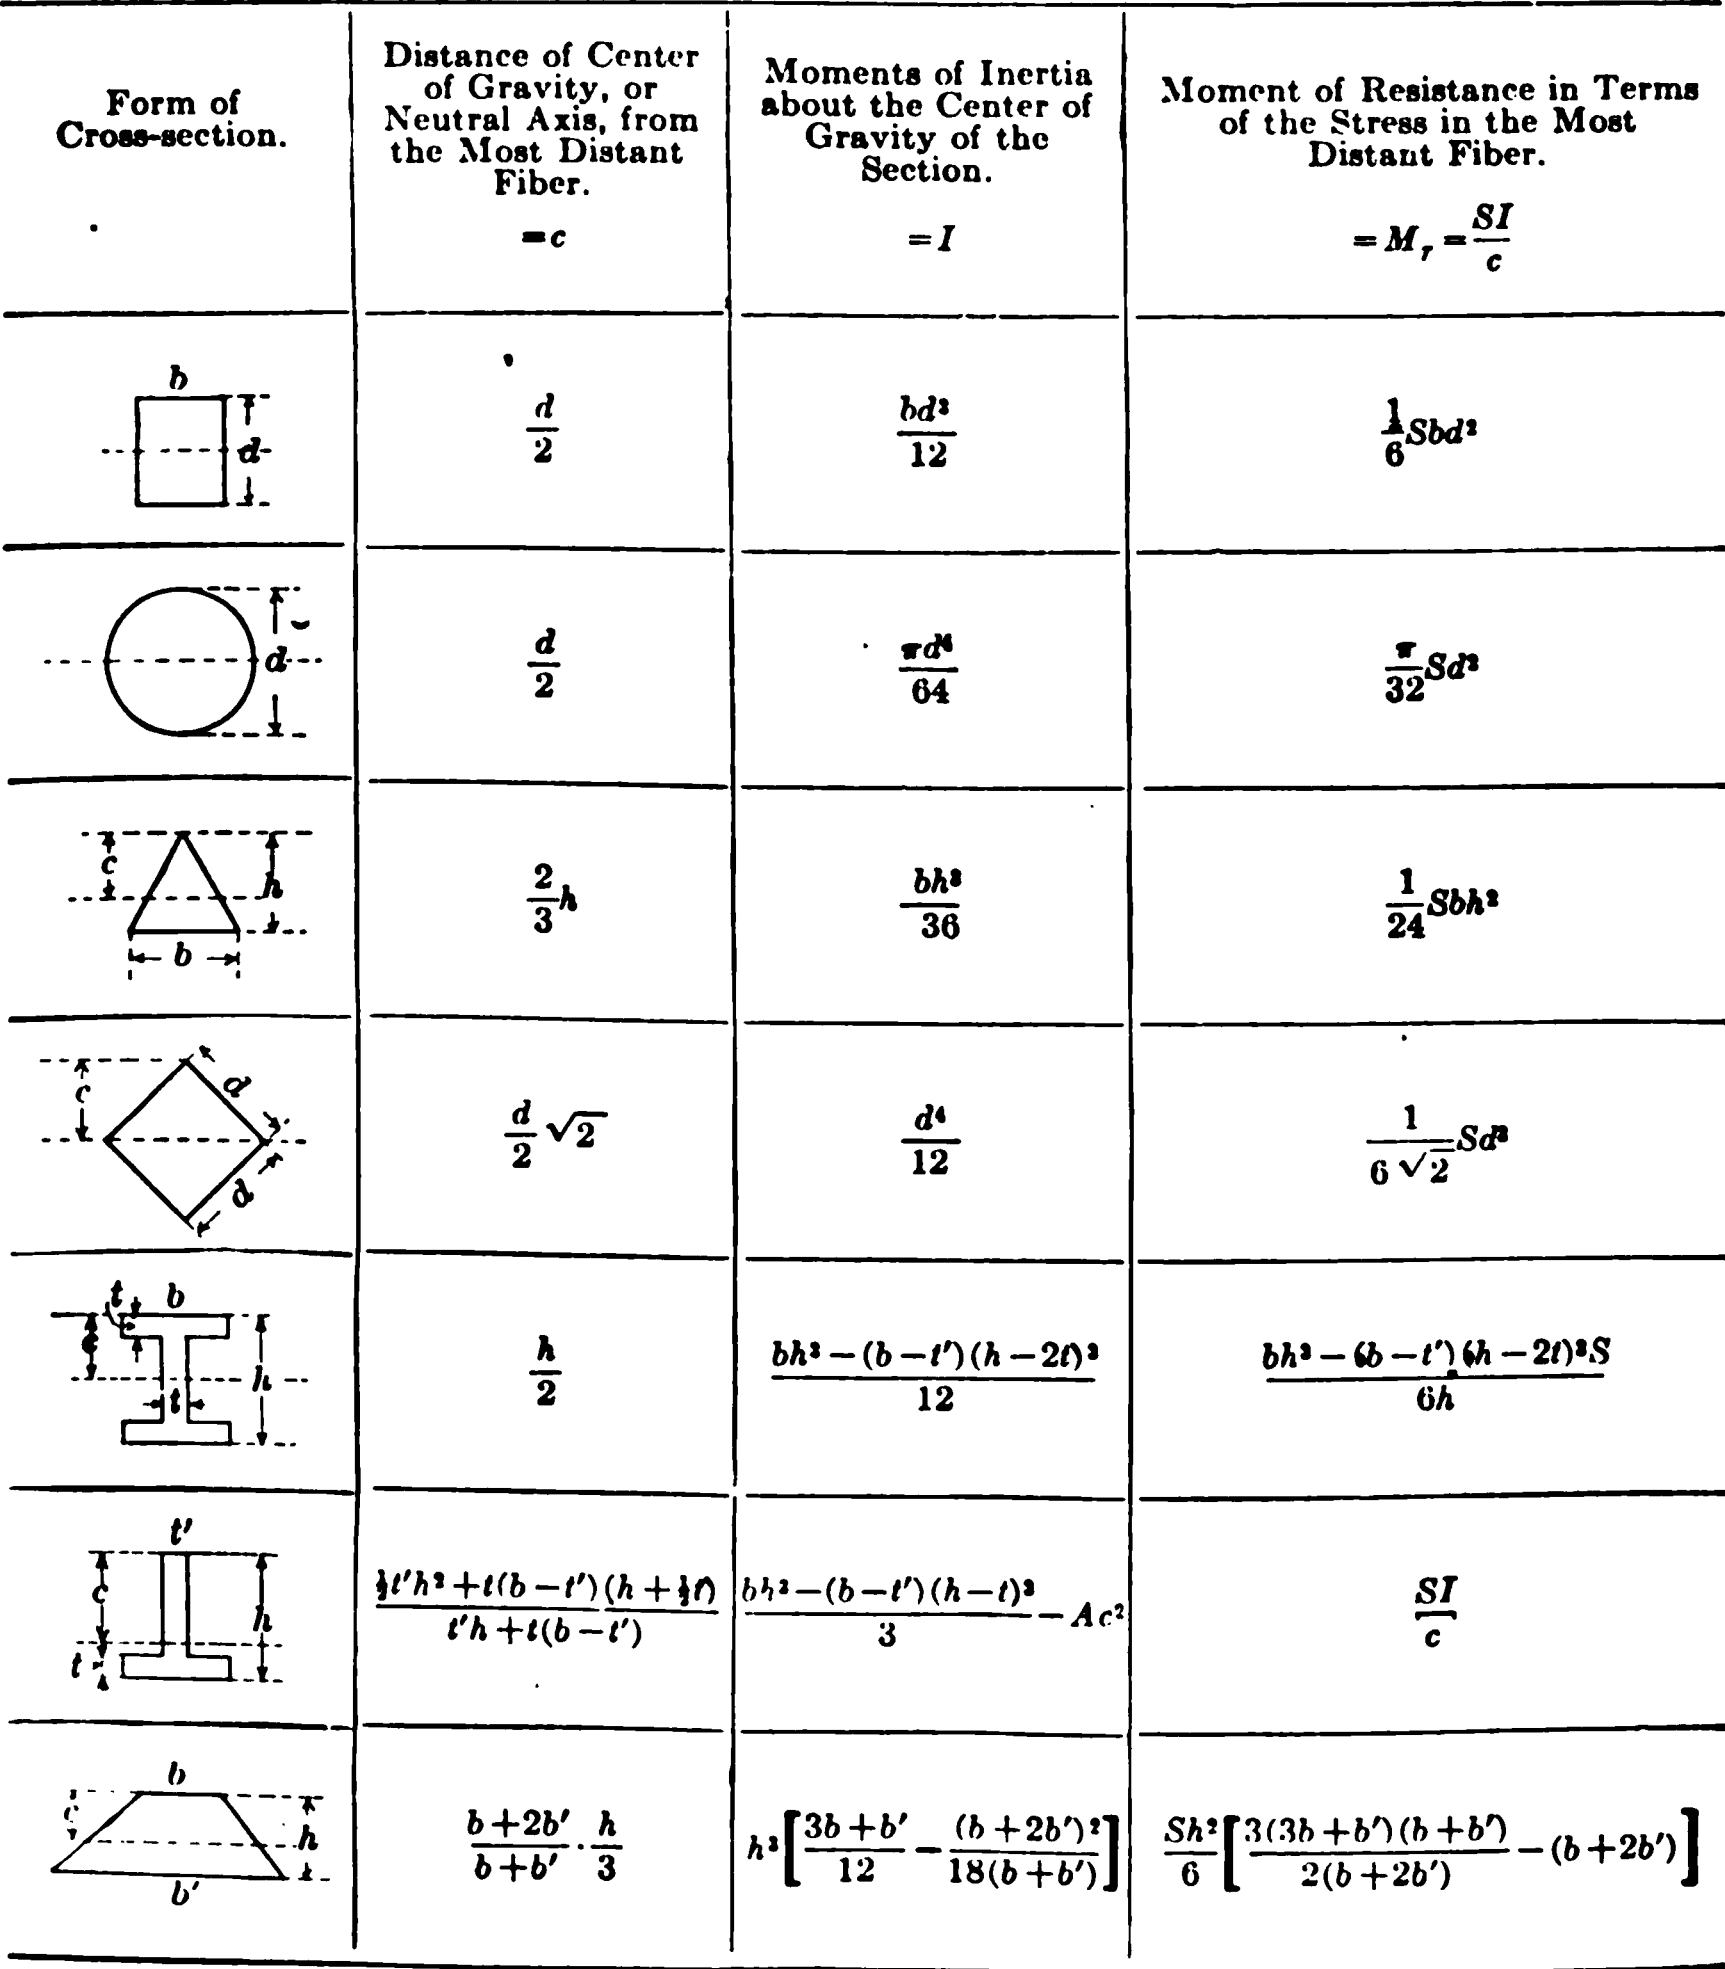 Form of
Cross-section.
Distance of Center
of Gravity, or
Neutral Axis, from
the Most Distant
Fiber.
= c
Moments of Inertia
about the Center of
Gravity of the
Section.
= I
Moment of Resistance in Terms
of the Stress in the Most
Distant Fiber.
= M_r = SI/c
b
d
d/2
bd³/12
1/6 Sbd²
d
d/2
πd⁴/64
π/32 Sd³
c
h
b
2/3 h
bh³/36
1/24 Sbh²
c
d
d
d/2 √2
d⁴/12
1/(6√2) Sd³
t b
c
h
t
h/2
bh³ − (b − t′)(h − 2t)³
12
bh³ − (b − t′)(h − 2t)³S
6h
t′
c
h
t
½t′h² + t(b − t′)(h + ½t)
t′h + t(b − t′)
bh³ − (b − t′)(h − t)³
3
− Ac²
SI/c
b
c
h
b′
(b + 2b′)/(b + b′) · h/3
h³[(3b + b′)/12 − (b + 2b′)²/18(b + b′)]
Sh²/6 [3(3b + b′)(b + b′)/2(b + 2b′) − (b + 2b′)]